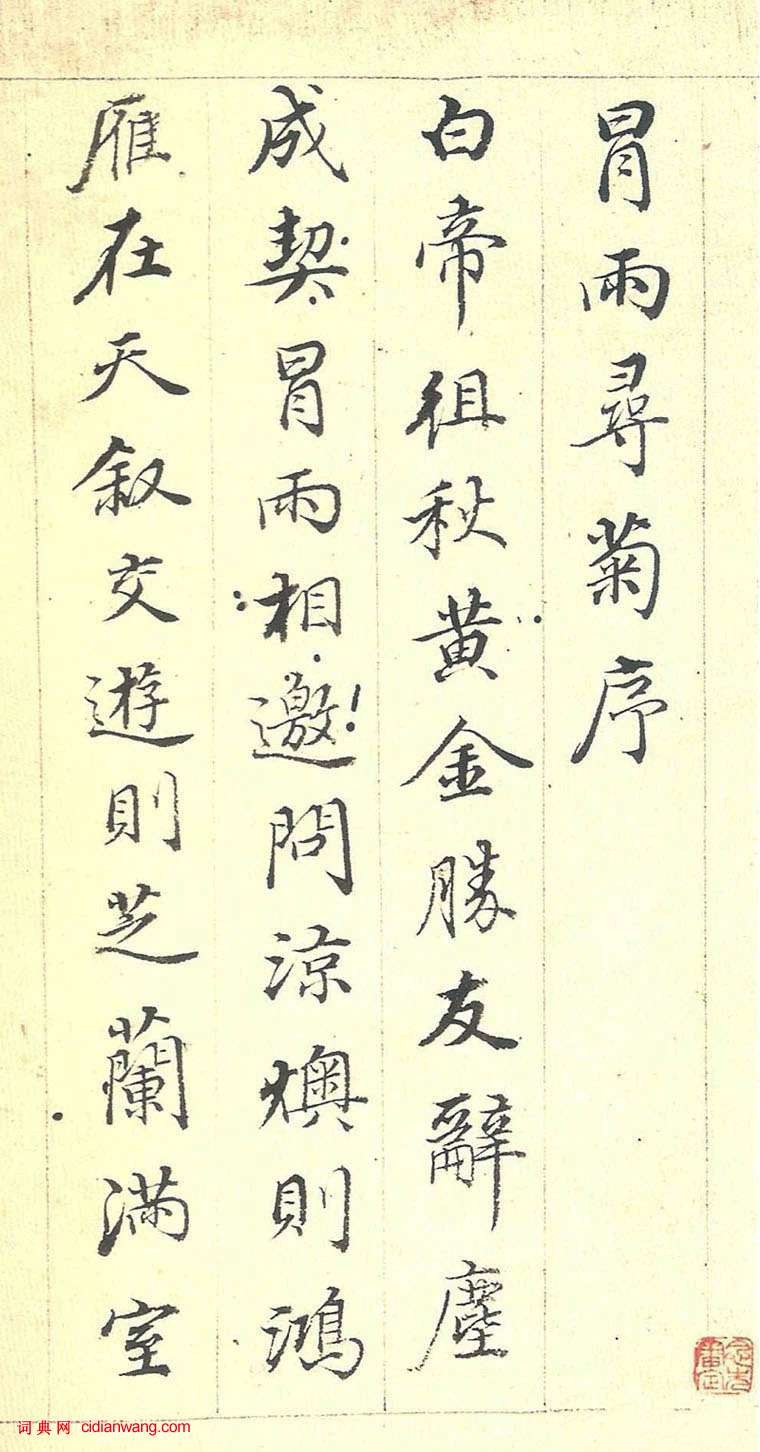 冒雨尋菊序
白帝徂秋黄金勝友辭塵
成契冒雨相邀問涼燠則鴻
雁在天叙交遊則芝蘭滿室
词典网 cidianwang.com